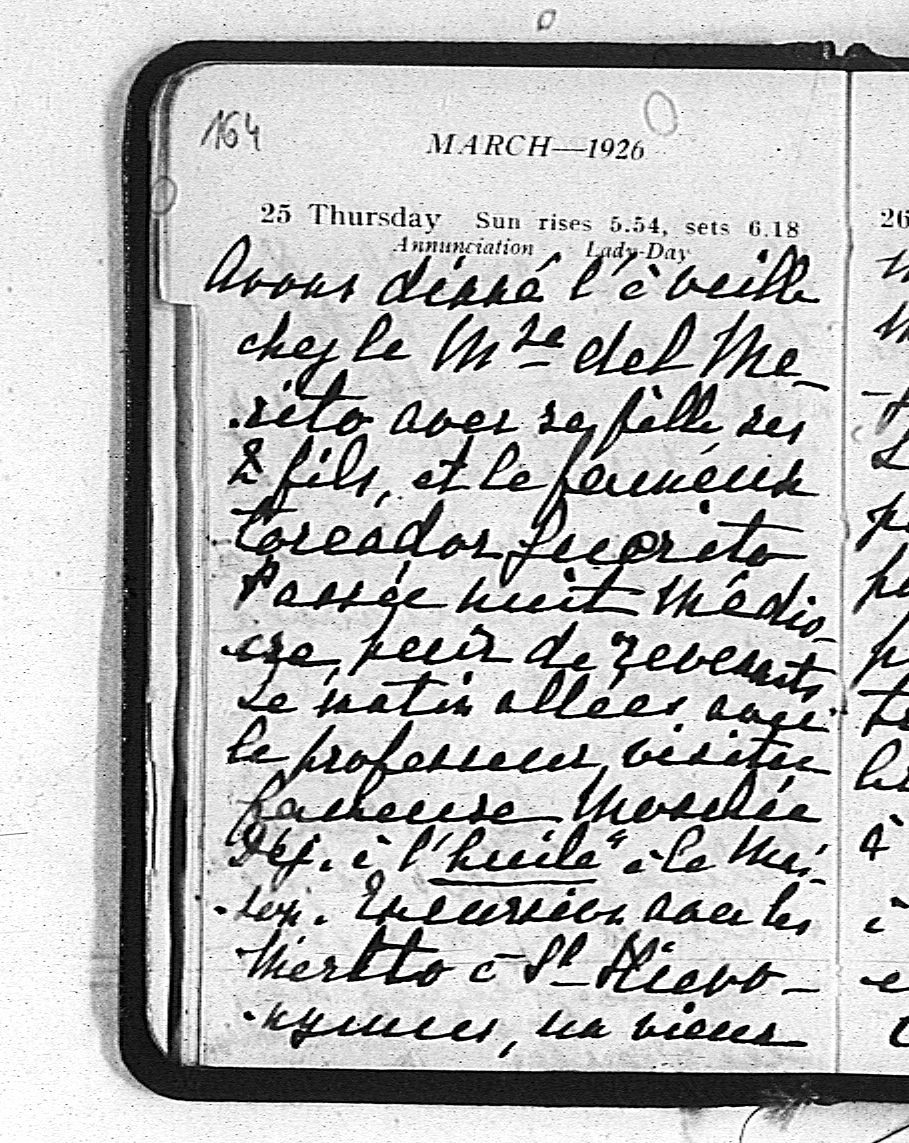 164
MARCH—1926
25 Thursday Sun rises 5.54, sets 6.18
Annunciation Lady-Day
Avons dinné l'à veille
chez le Mse del Me-
-rito avec sa fille ses
2 fils, et le fameux
toreador Guerrito
Passée nuit médio-
cre, peur de "revenants"
Le matin allées avec
le professeur visiter
fameuse Mosquée
Déj. à l'"huile" à la Mai-
-son. Excursion avec les
Merito à St Hiero-
-nymus, un vieux
26